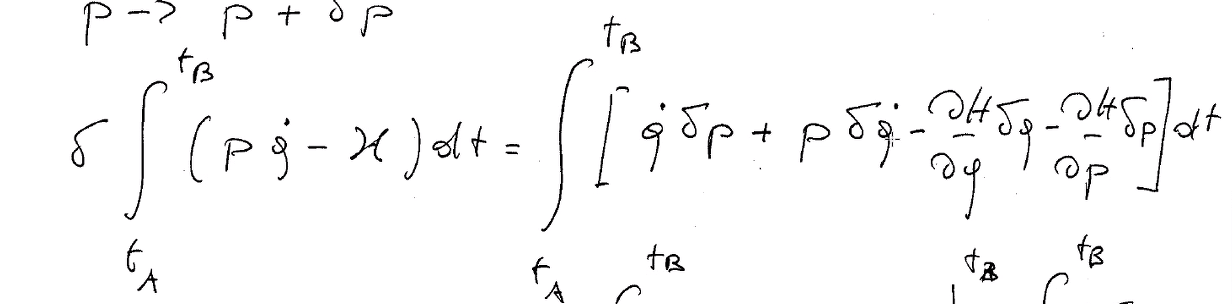 p -> p + δp
δ ∫_{t_A}^{t_B} (p q̇ - ℋ) dt = ∫_{t_A}^{t_B} [ q̇ δp + p δq̇ - ∂H/∂q δq - ∂H/∂p δp ] dt
t_B t_B t_B